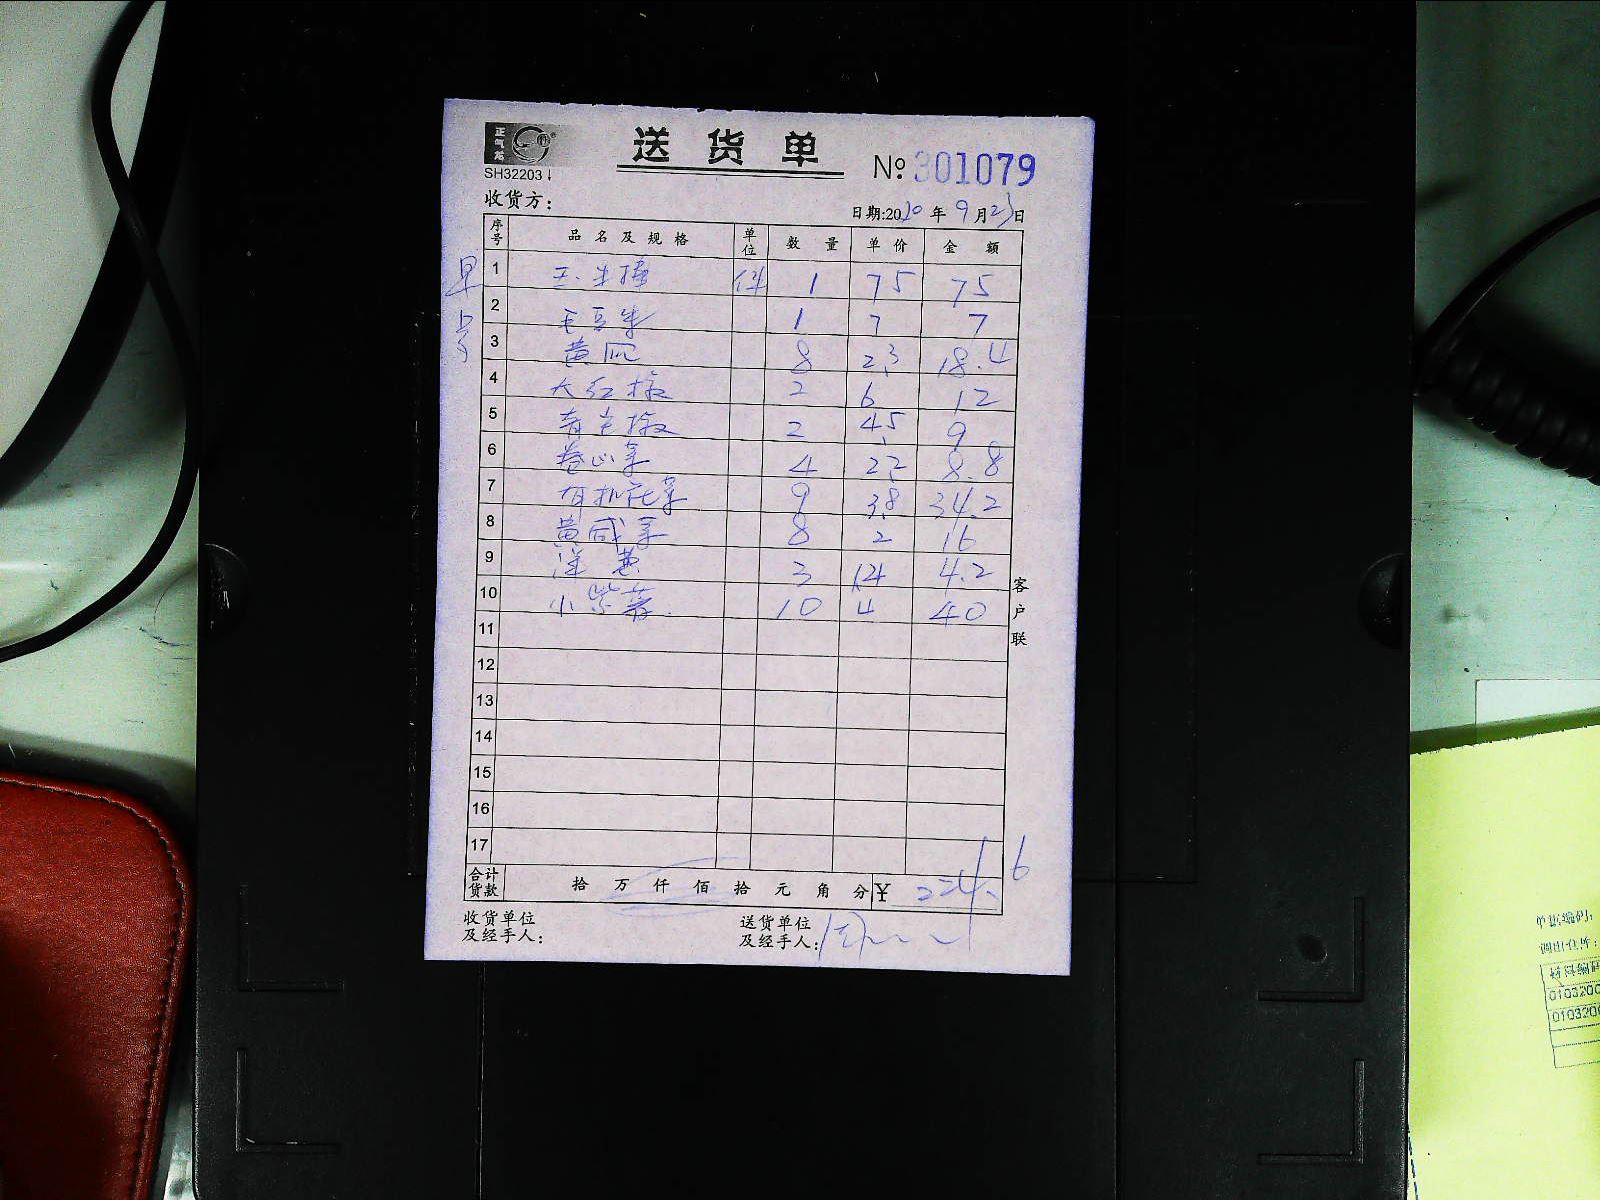 正气龙
SH32203↓
送货单
№ 301079
收货方：
日期:2020年9月23日
序号 品名及规格 单位 数量 单价 金额
早点
1 件 1 75 75
2 1 7 7
3 黄瓜 8 2.3 18.4
4 大红椒 2 6 12
5 青尖椒 2 4.5 9
6 卷心菜 4 2.2 8.8
7 有机花菜 9 3.8 34.2
8 黄咸菜 8 2 16
9 洋葱 3 1.4 4.2
10 小紫薯 10 4 40
11
12
13
14
15
16
17
客户联
合计货款 拾万仟佰拾元角分 ¥ 224.6
收货单位及经手人：
送货单位及经手人：
010320
010320